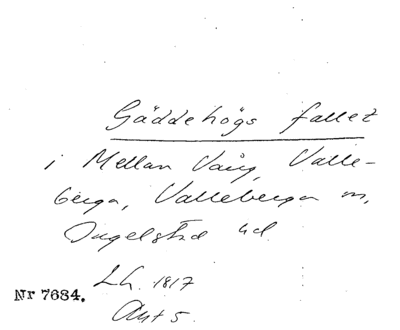 Gäddehögs fallet
i Mellan Vång, Valle-
berga, Valleberga sn,
Ingelstad hd
LG. 1817
Akt 5
Nr 7684.